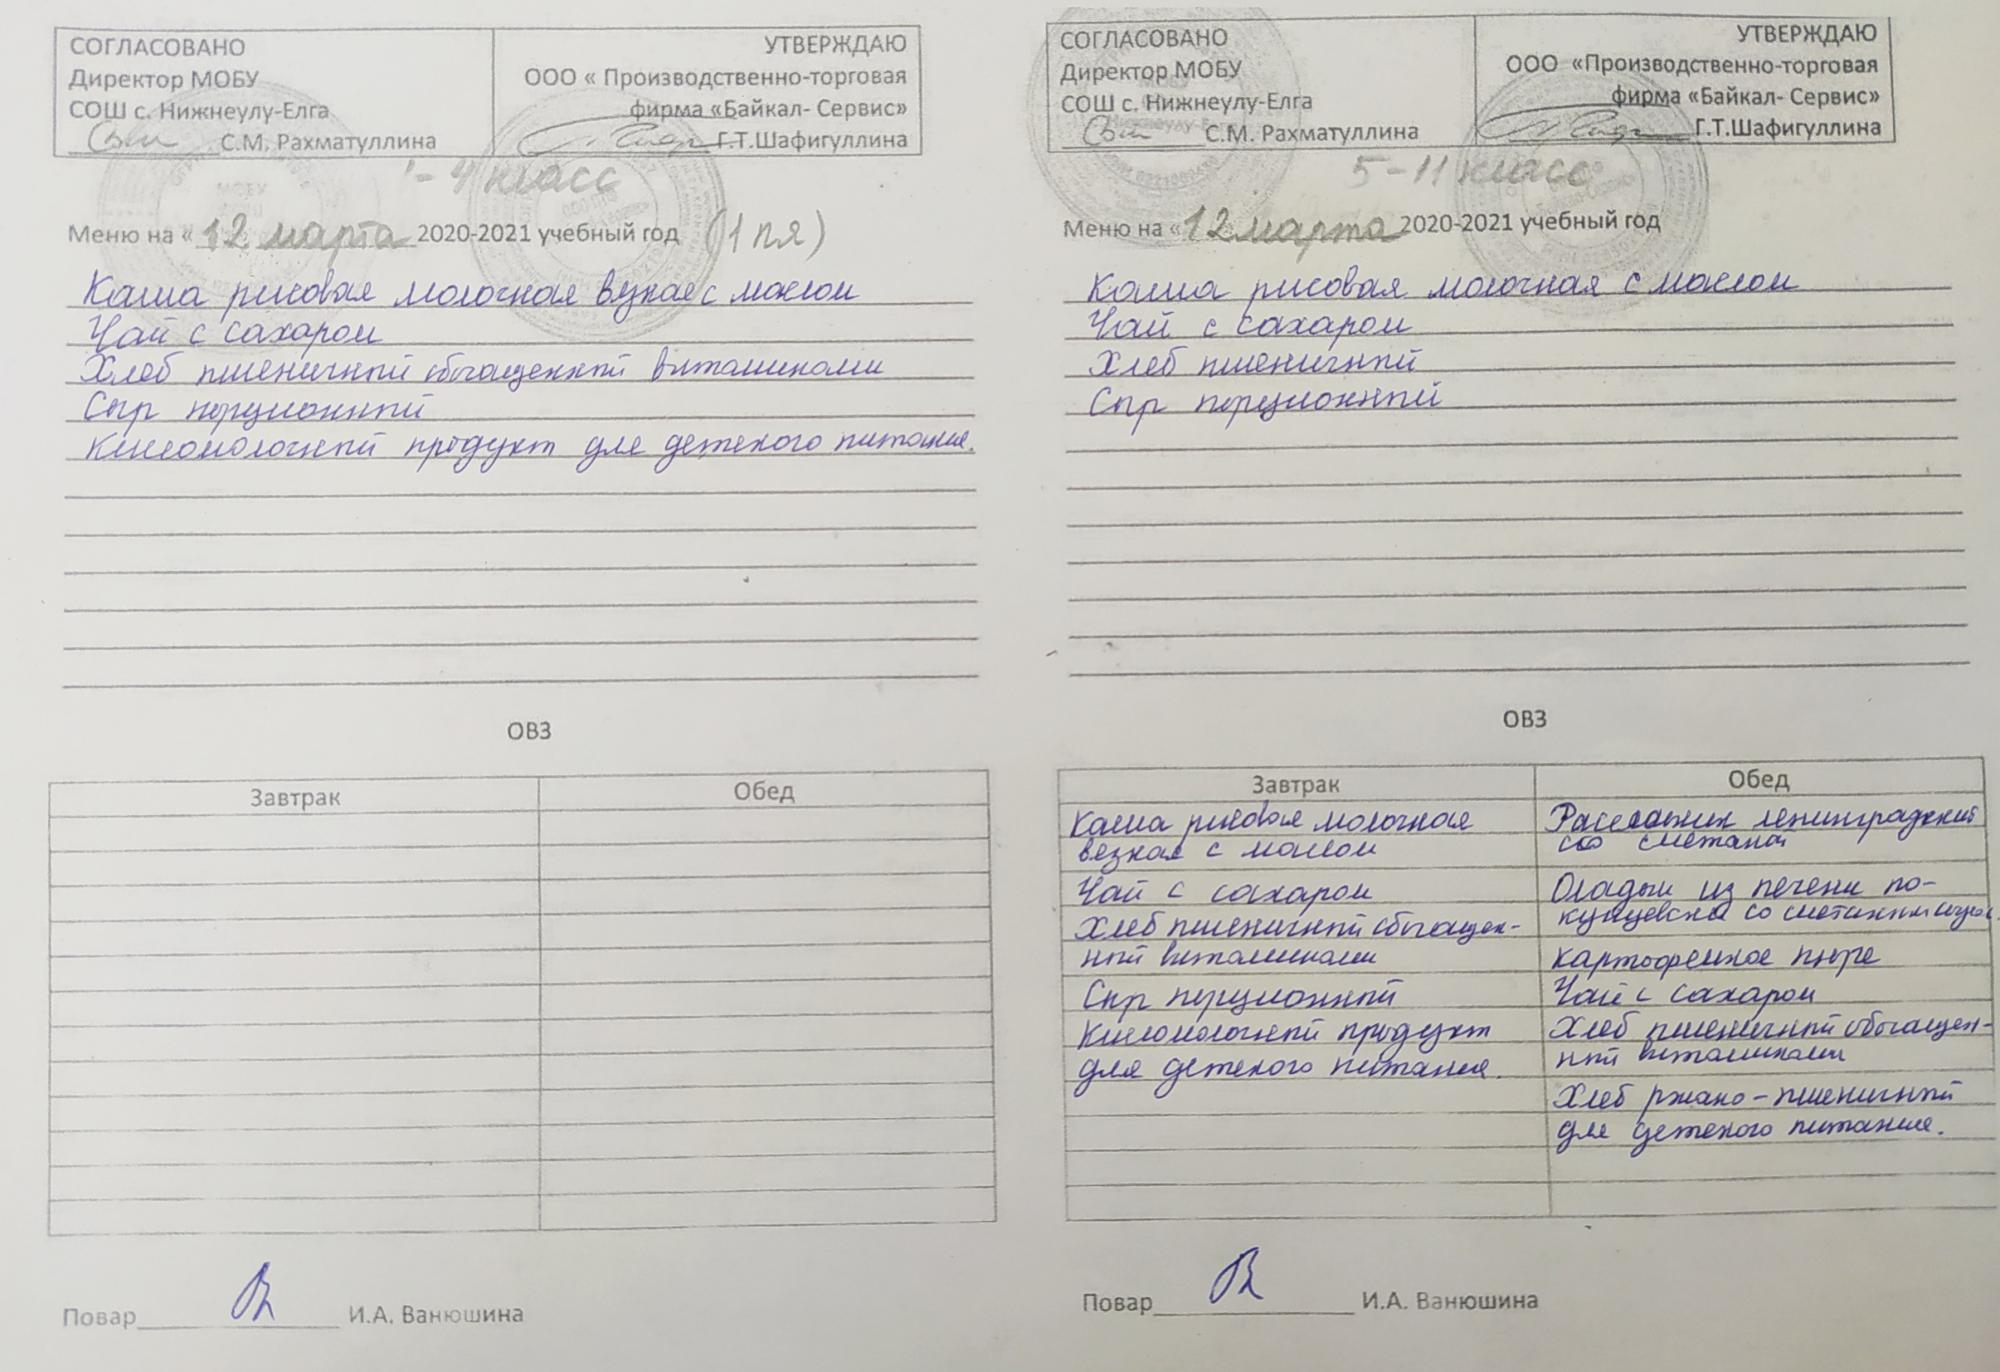 СОГЛАСОВАНО
Директор МОБУ
СОШ с. Нижнеулу-Елга
С.М. Рахматуллина
УТВЕРЖДАЮ
ООО « Производственно-торговая
фирма «Байкал- Сервис»
Г.Т.Шафигуллина
1-4 класс
Меню на « 12 марта 2020-2021 учебный год (1 пя)
Каша рисовая молочная вязкая с маслом
Чай с сахаром
Хлеб пшеничный обогащенный витаминами
Сыр порционный
Кисломолочный продукт для детского питания.
ОВЗ
Завтрак Обед
Повар И.А. Ванюшина
СОГЛАСОВАНО
Директор МОБУ
СОШ с. Нижнеулу-Елга
С.М. Рахматуллина
УТВЕРЖДАЮ
ООО «Производственно-торговая
фирма «Байкал- Сервис»
Г.Т.Шафигуллина
5-11 класс
Меню на « 12 марта 2020-2021 учебный год
Каша рисовая молочная с маслом
Чай с сахаром
Хлеб пшеничный
Сыр порционный
ОВЗ
Завтрак
Каша рисовая молочная
вязкая с маслом
Чай с сахаром
Хлеб пшеничный обогащен-
ный витаминами
Сыр порционный
Кисломолочный продукт
для детского питания.
Обед
Рассольник ленинградский
со сметаной
Оладьи из печени по-
кунцевски со сметанным соусом
картофельное пюре
Чай с сахаром
Хлеб пшеничный обогащен-
ный витаминами
Хлеб ржано-пшеничный
для детского питания.
Повар И.А. Ванюшина